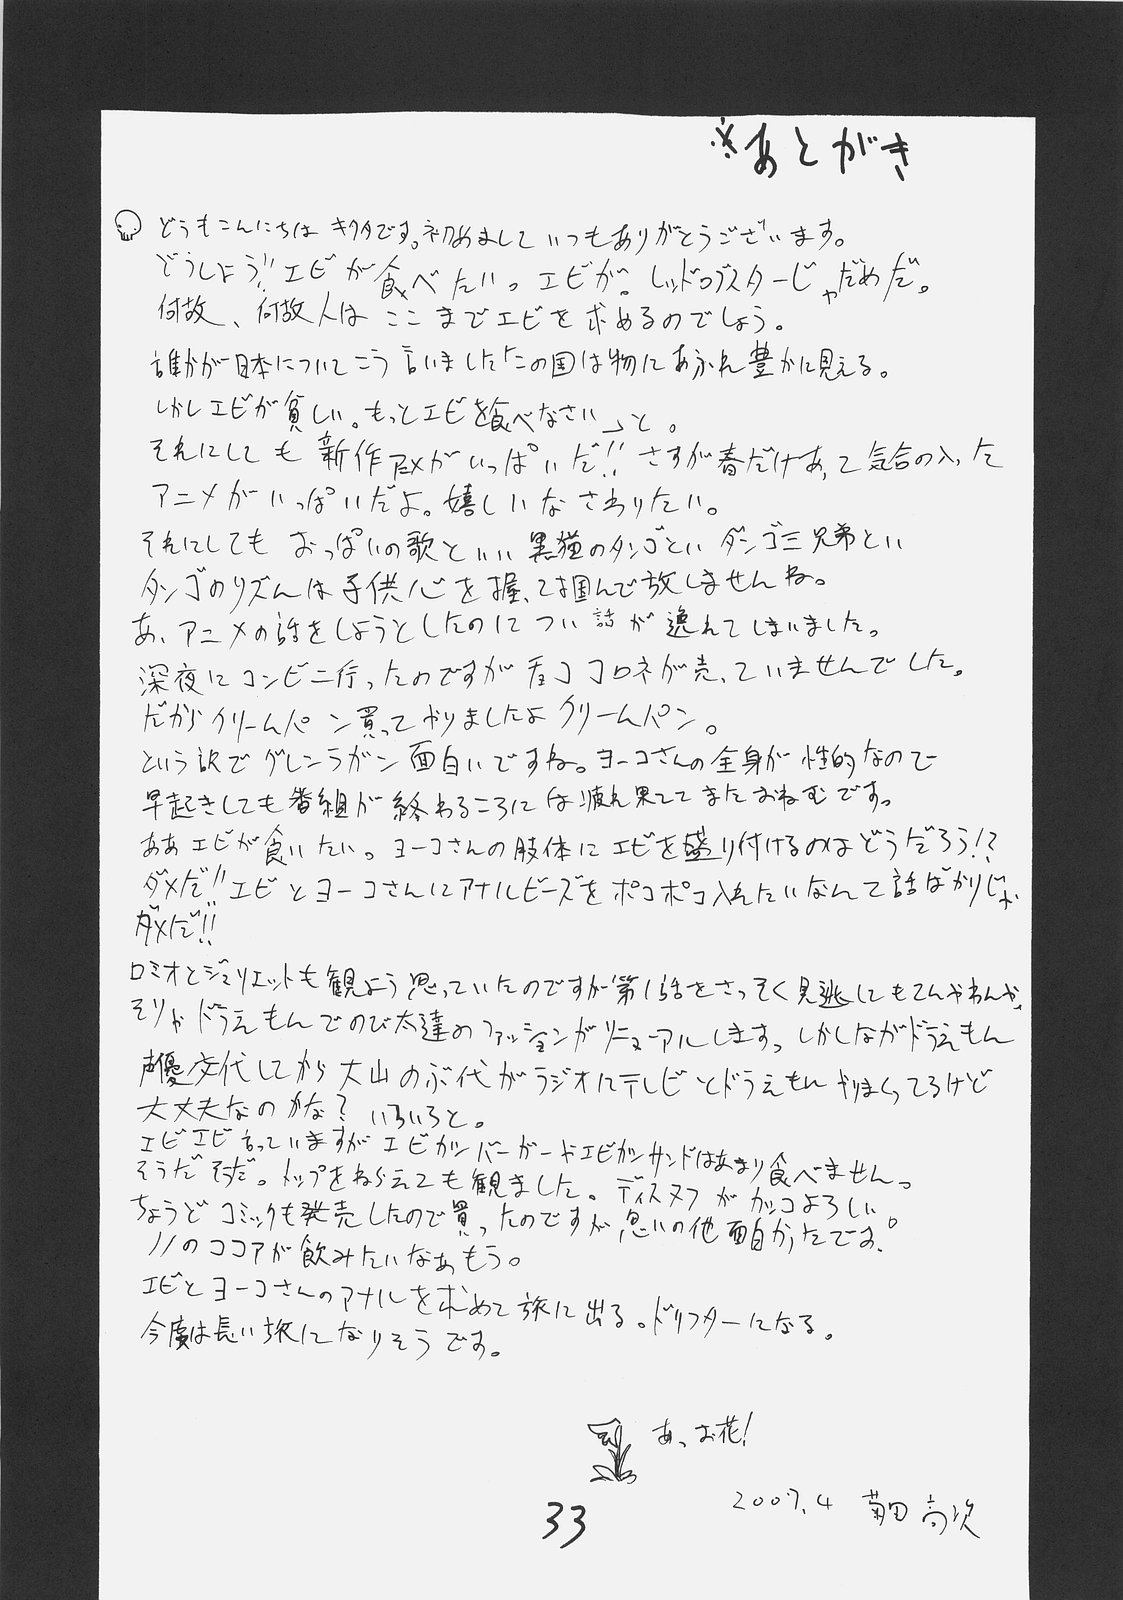 ※あとがき
どうもこんにちは キクタです。初めまして いつもありがとうございます。
どうしよう!!エビが食べたいっ エビが。レッドロブスターじゃだめだ。
何故、何故人は ここまでエビを求めるのでしょう。
誰かが日本についてこう言いました「この国は物にあふれ豊かに見える。
しかしエビが貧しい。もっとエビを食べなさい」と。
それにしても 新作アニメがいっぱいだ!! さすが春だけあって気合の入った
アニメがいっぱいだよ。嬉しいな さわりたい。
それにしても おっぱいの歌といい 黒猫のタンゴとい ダンゴ三兄弟とい
タンゴのリズムは子供心を握って掴んで放しませんね。
あ、アニメの話をしようとしたのに つい 話が 逸れてしまいました。
深夜にコンビニ行ったのですが チョココロネが売っていませんでした。
だからクリームパン買ってやりましたよ クリームパン。
という訳で グレンラガン 面白いですね。ヨーコさんの全身が 性的なので
早起きしても番組が終わるころには疲れ果ててまたおねむです。
ああエビが食いたい。ヨーコさんの肢体にエビを盛り付けるのはどうだろう!?
ダメだ!!エビとヨーコさんにアナルビーズをポコポコ入れたいなんて話ばかりじゃ
ダメだ!!
ロミオとジュリエットも観よう思っていたのですが第1話をさっそく見逃してもてんやわんや、
そりゃドラえもんでのび太達のファッションがリニューアルしますっ しかしながドラえもん
声優交代してから大山のぶ代がラジオにテレビとドラえもんやりまくってるけど
大丈夫なのかな? いろいろと。
エビエビ言っていますが エビカツバーガーやエビカツサンドはあまり食べませんっ
そうだ そうだ。トップをねらえても観ました。ディスヌフがカッコよろしい
ちょうどコミックも発売したので買ったのですが思いの他面白かったです。
ノノのココアが飲みたいなぁもう。
エビとヨーコさんのアナルを求めて旅に出る。ドリフターになる。
今度は長い旅になりそうです。
あっ お花!
2007.4 菊田 高次
33